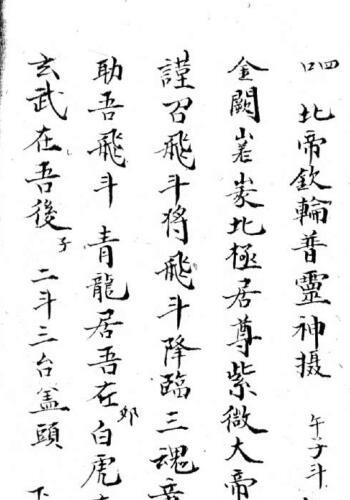 吅 北帝欽輪普靈神摄 午子斗
金闕嵳峩北極居尊紫微大帝
謹召飛斗将飛斗降臨三魂
助吾飛斗 青龍居吾在卯 白虎
玄武在吾後子 二斗三台盖頭 下